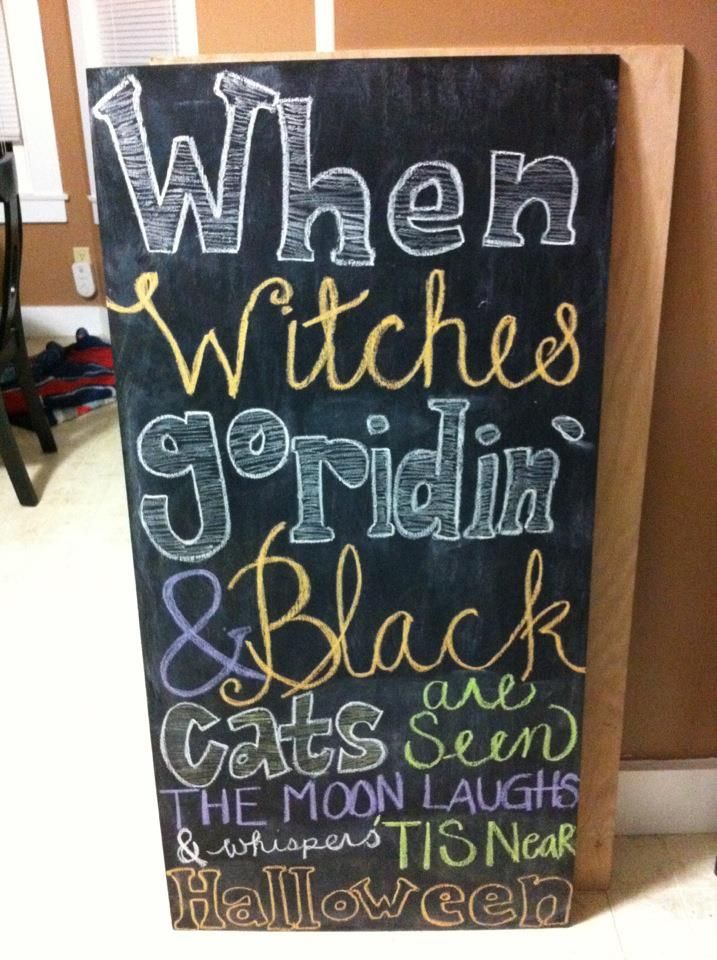 When
Witches
go ridin'
& Black
cats are Seen
THE MOON LAUGHS
& whispers 'TIS NeaR
Halloween